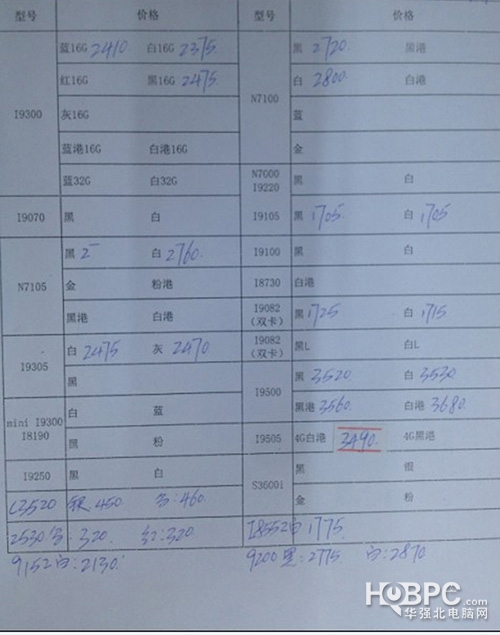 型号 价格 型号 价格
I9300 蓝16G 2410 白16G 2375
红16G 黑16G 2475
灰16G
蓝港16G 白港16G
蓝32G 白32G
I9070 黑 白
N7105 黑 2 白 2760
金 粉港
黑港 白港
I9305 白 2475 灰 2470
黑
mini I9300 I8190 白 蓝
黑 粉
I9250 黑 白
C3520 银:450 460
2530 320 红:320
9152白:2130
N7100 黑 2720 黑港
白 2800 白港
蓝
金
N7000 I9220 黑 白
I9105 黑 1705 白 1705
I9100 黑 白
I8730 白港
I9082(双卡) 黑 1725 白 1715
I9082(双卡) 黑L 白L
I9500 黑 3520 白 3530
黑港 3560 白港 3680
I9505 4G白港 3490 4G黑港
S3600i 黑 银
金 粉
I8552白 1775
9200 黑:2775 白:2870
HQBPC.com
华强北电脑网